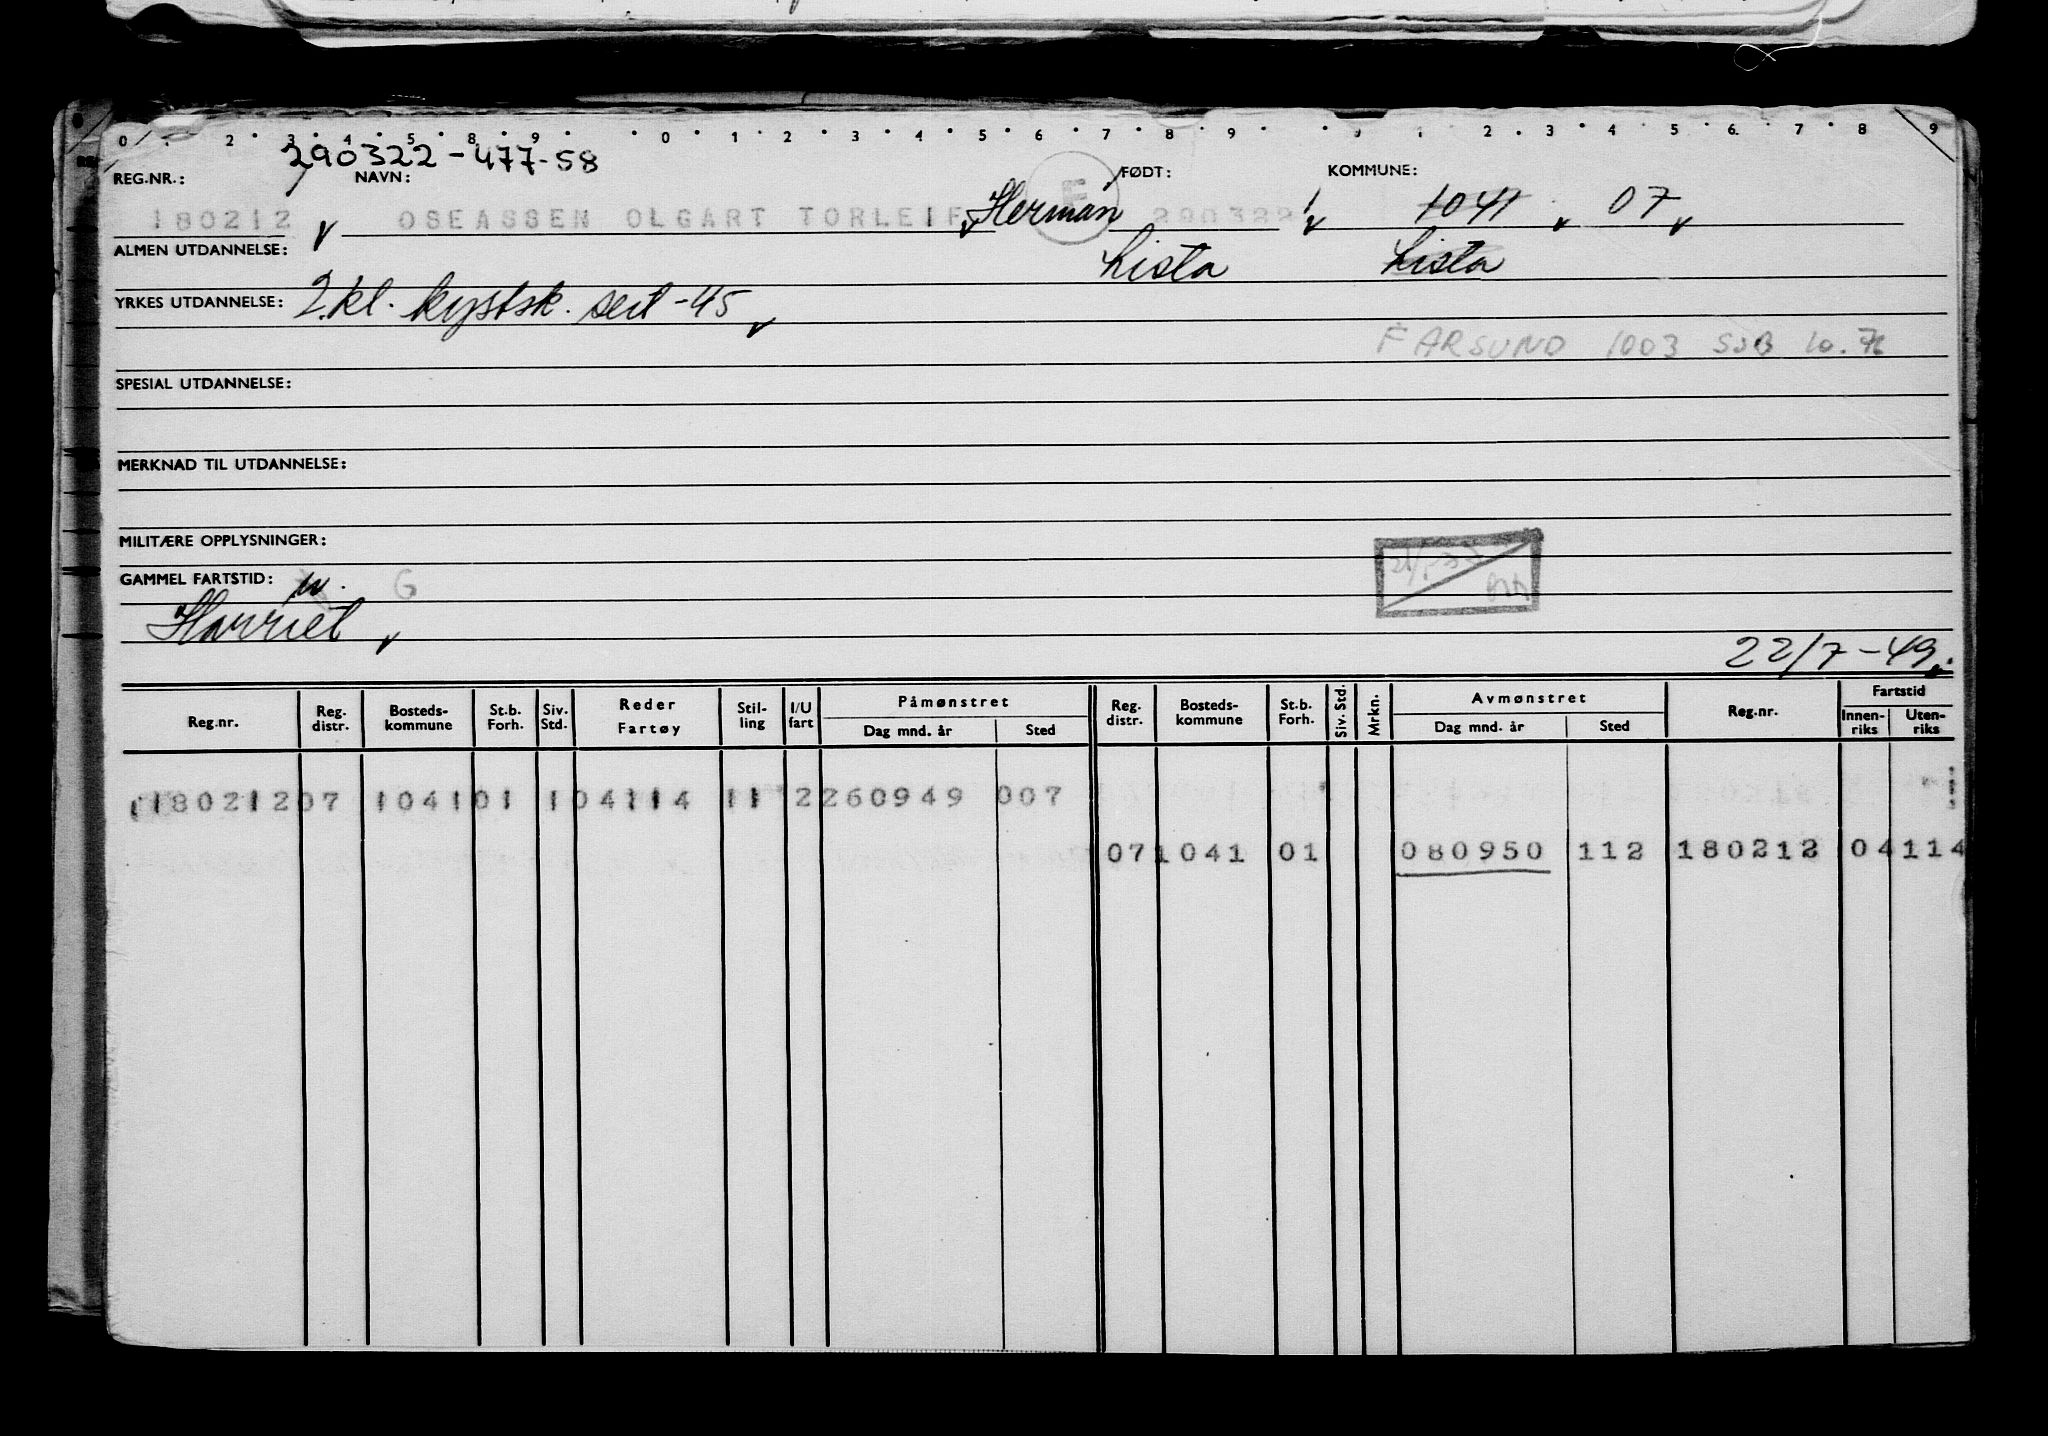 0 2 3 4 5 8 9 0 1 2 3 4 5 6 7 8 9 1 2 3 4 5 6 7 8 9
290322-477-58
REG.NR.: NAVN: FØDT: KOMMUNE:
180212 OSEASSEN OLGART TORLEIF Herman 290322 1041 07
ALMEN UTDANNELSE: Lista Lista
YRKES UTDANNELSE: 2 kl. kystsk. sert -45
FARSUND 1003 SJØ 10.76
SPESIAL UTDANNELSE:
MERKNAD TIL UTDANNELSE:
MILITÆRE OPPLYSNINGER:
GAMMEL FARTSTID: G
Harriet
22/7-49
Reg.nr. Reg. distr. Bosteds-kommune St.b. Forh. Siv. Std. Reder Fartøy Stil-ling I/U fart Påmønstret Dag mnd. år Sted Reg. distr. Bosteds-kommune St.b. Forh. Siv. Std. Mrkn. Avmønstret Dag mnd. år Sted Reg.nr. Fartstid Innen-riks Uten-riks
180212 07 1041 01 1 04114 11 2 260949 007
07 1041 01 080950 112 180212 04114